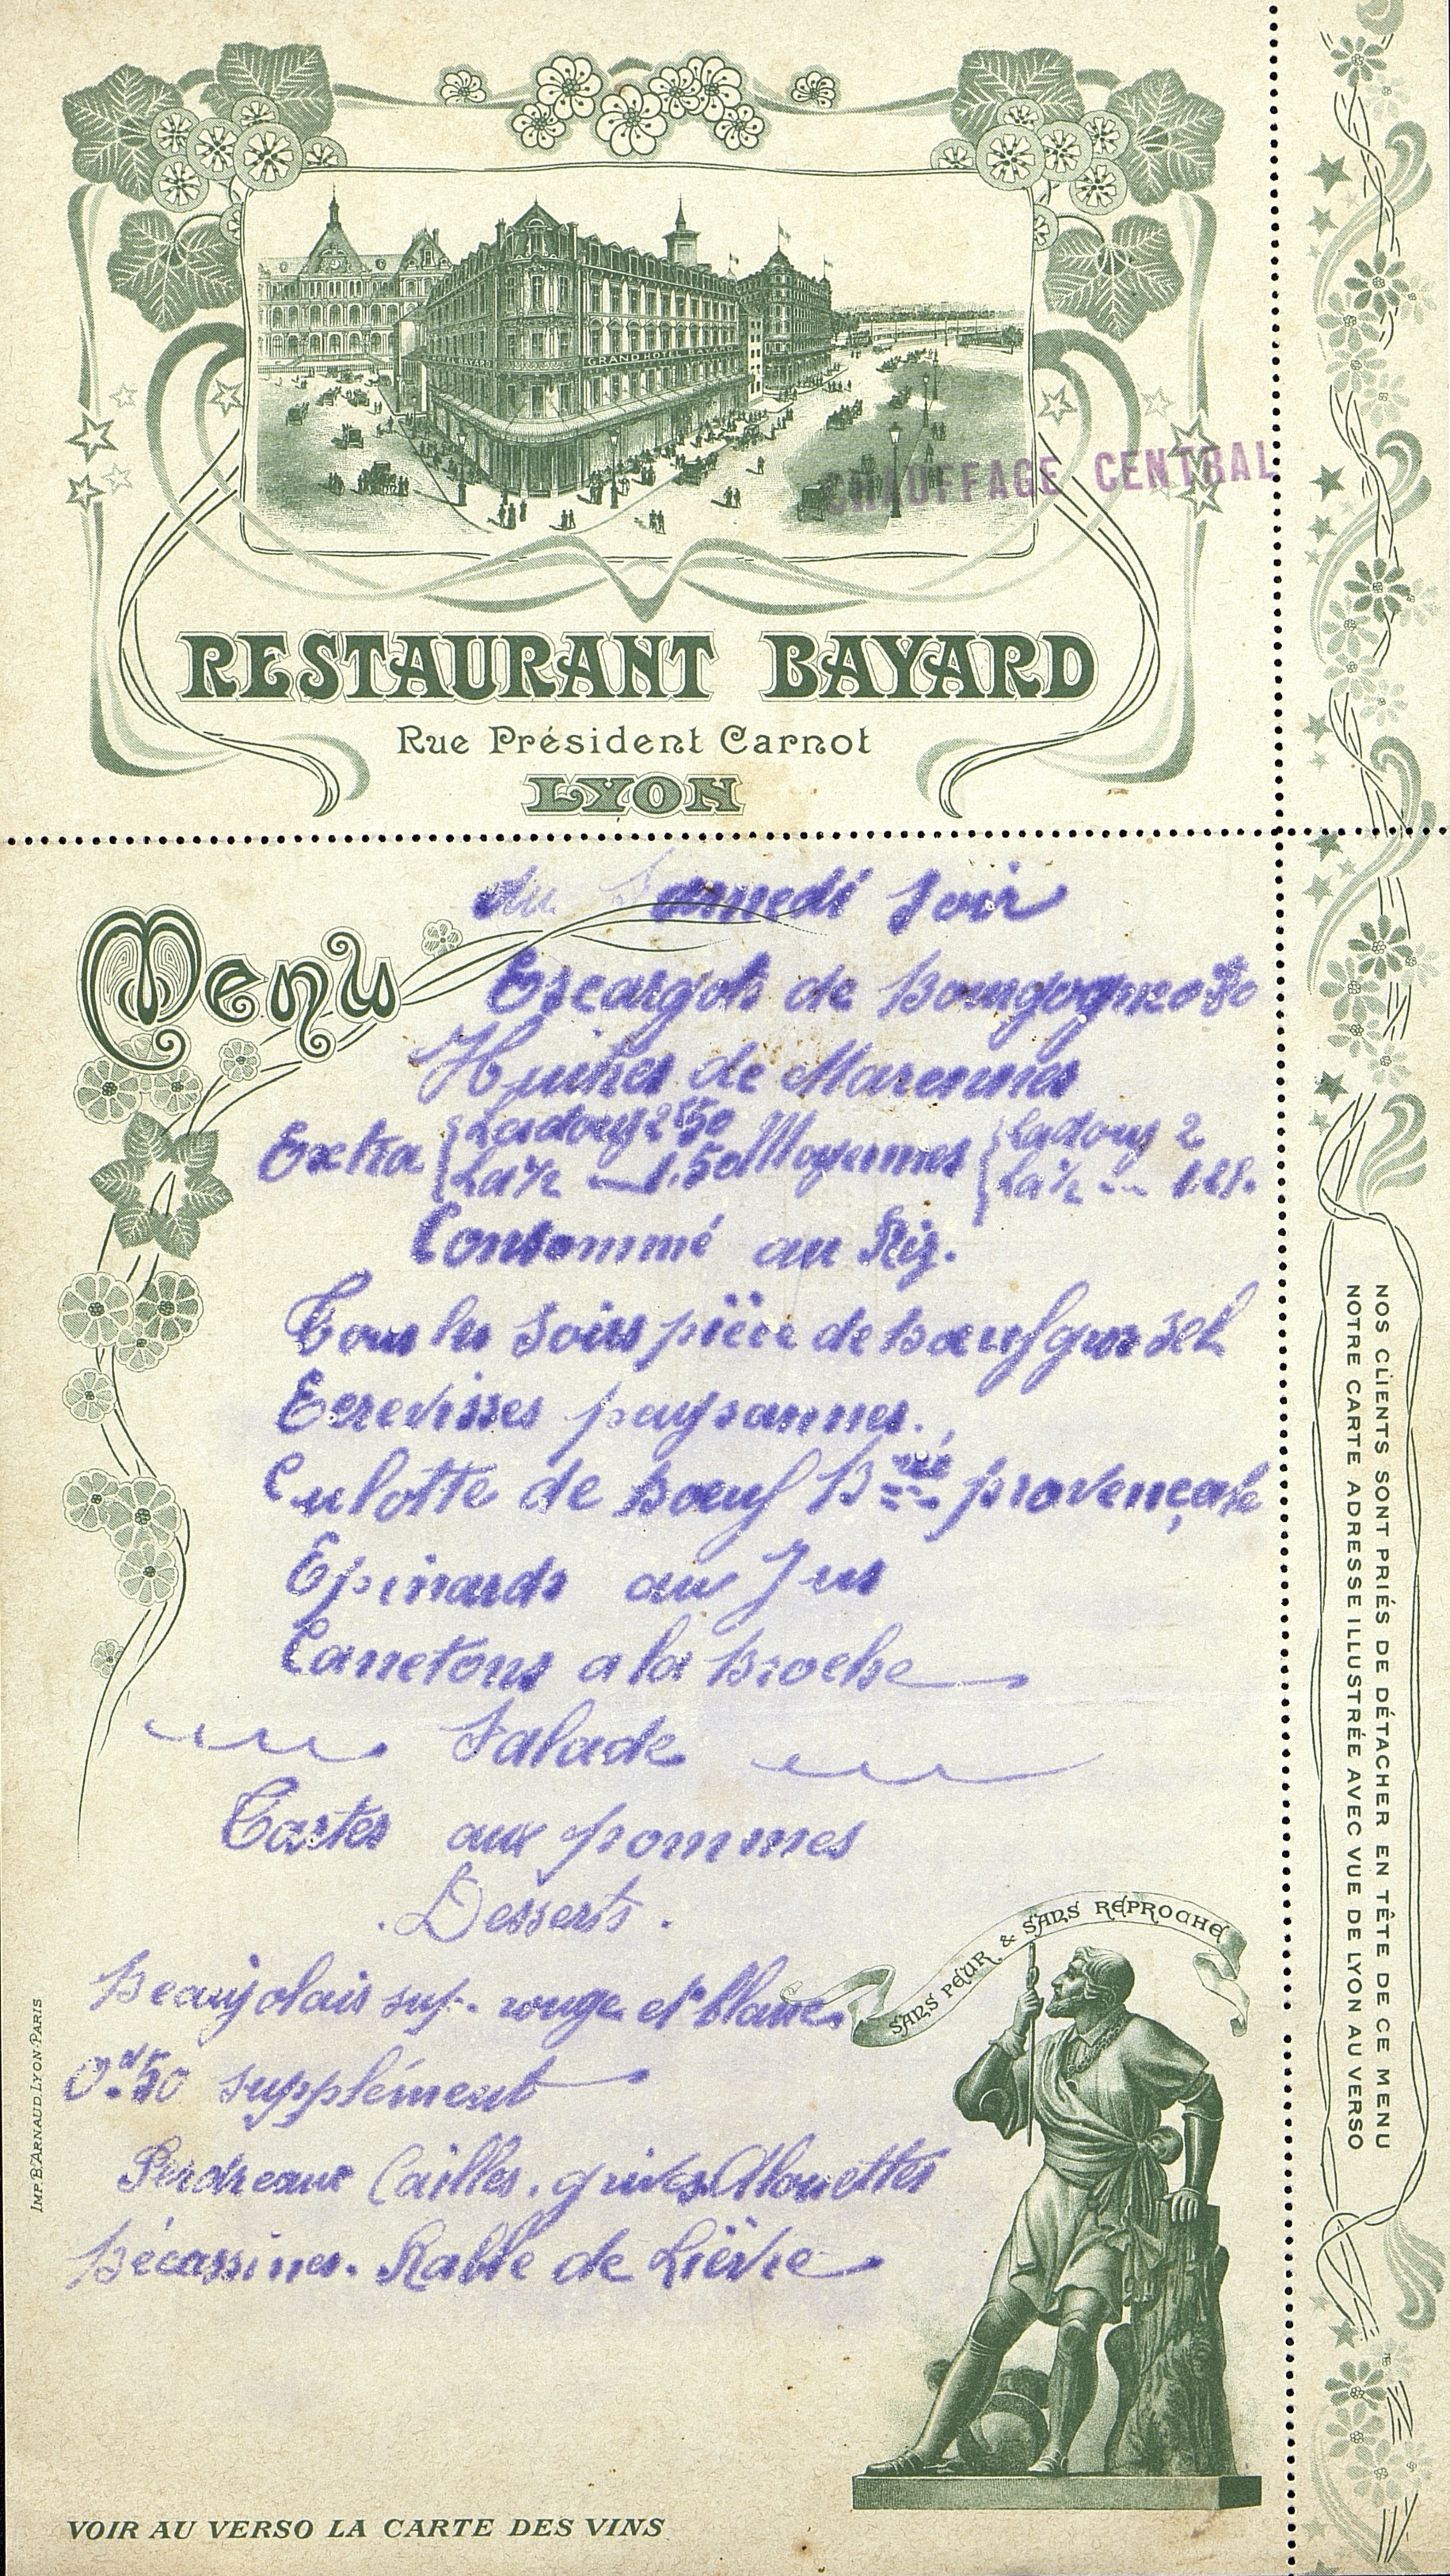 HOTEL BAYARD
GRAND HOTEL BAYARD
CHAUFFAGE CENTRAL
RESTAURANT BAYARD
Rue Président Carnot
LYON
Menu
du Samedi Soir
Escargots de Bourgogne
Huitres de Marennes
Extra { La douz 2 50 Moyennes { la douz 2
La ½ — 1.50 La ½ -- 1.25.
Consommé au Riz.
Tous les soirs pièce de boeuf gros sel
Ecrevisses paysannes.
Culotte de boeuf provençale
Epinards au Jus
Canetons a la broche
Salade
Tartes aux pommes
. Desserts .
Beaujolais sup. rouge et blanc
0.50 supplément
Perdreaux Cailles. grives Alouettes
Bécassines. Rable de Lièvre
SANS PEUR & SANS REPROCHE
VOIR AU VERSO LA CARTE DES VINS
IMP. B. ARNAUD. LYON-PARIS
NOS CLIENTS SONT PRIÉS DE DÉTACHER EN TÊTE DE CE MENU
NOTRE CARTE ADRESSE ILLUSTRÉE AVEC VUE DE LYON AU VERSO